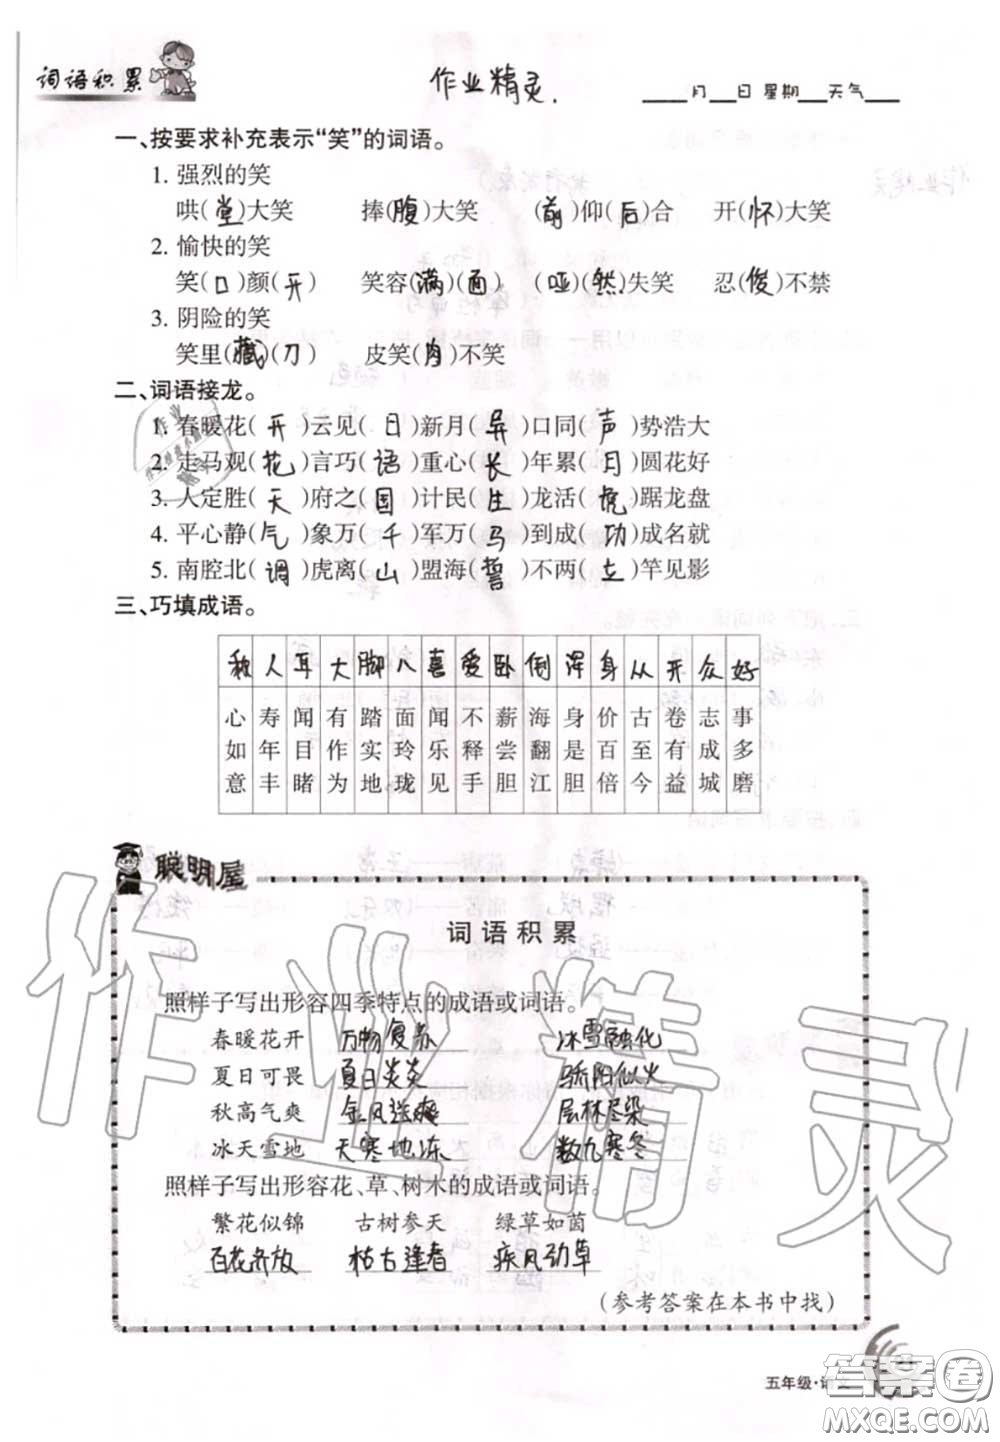 词语积累
作业精灵.
____月___日 星期___天气____
一、按要求补充表示“笑”的词语。
1. 强烈的笑
哄(堂)大笑 捧(腹)大笑 (前)仰(后)合 开(怀)大笑
2. 愉快的笑
笑(口)颜(开) 笑容(满)(面) (哑)(然)失笑 忍(俊)不禁
3. 阴险的笑
笑里(藏)(刀) 皮笑(肉)不笑
二、词语接龙。
1. 春暖花(开)云见(日)新月(异)口同(声)势浩大
2. 走马观(花)言巧(语)重心(长)年累(月)圆花好
3. 人定胜(天)府之(国)计民(生)龙活(虎)踞龙盘
4. 平心静(气)象万(千)军万(马)到成(功)成名就
5. 南腔北(调)虎离(山)盟海(誓)不两(立)竿见影
三、巧填成语。
称 人 耳 大 脚 八 喜 爱 卧 倒 浑 身 从 开 众 好
心 寿 闻 有 踏 面 闻 不 薪 海 身 价 古 卷 志 事
如 年 目 作 实 玲 乐 释 尝 翻 是 百 至 有 成 多
意 丰 睹 为 地 珑 见 手 胆 江 胆 倍 今 益 城 磨
聪明屋
词语积累
照样子写出形容四季特点的成语或词语。
春暖花开 万物复苏 冰雪融化
夏日可畏 夏日炎炎 骄阳似火
秋高气爽 金风送爽 层林尽染
冰天雪地 天寒地冻 数九寒冬
照样子写出形容花、草、树木的成语或词语。
繁花似锦 古树参天 绿草如茵
百花齐放 枯古逢春 疾风劲草
(参考答案在本书中找)
五年级·语文
作业精灵
答案圈
MXQE.COM